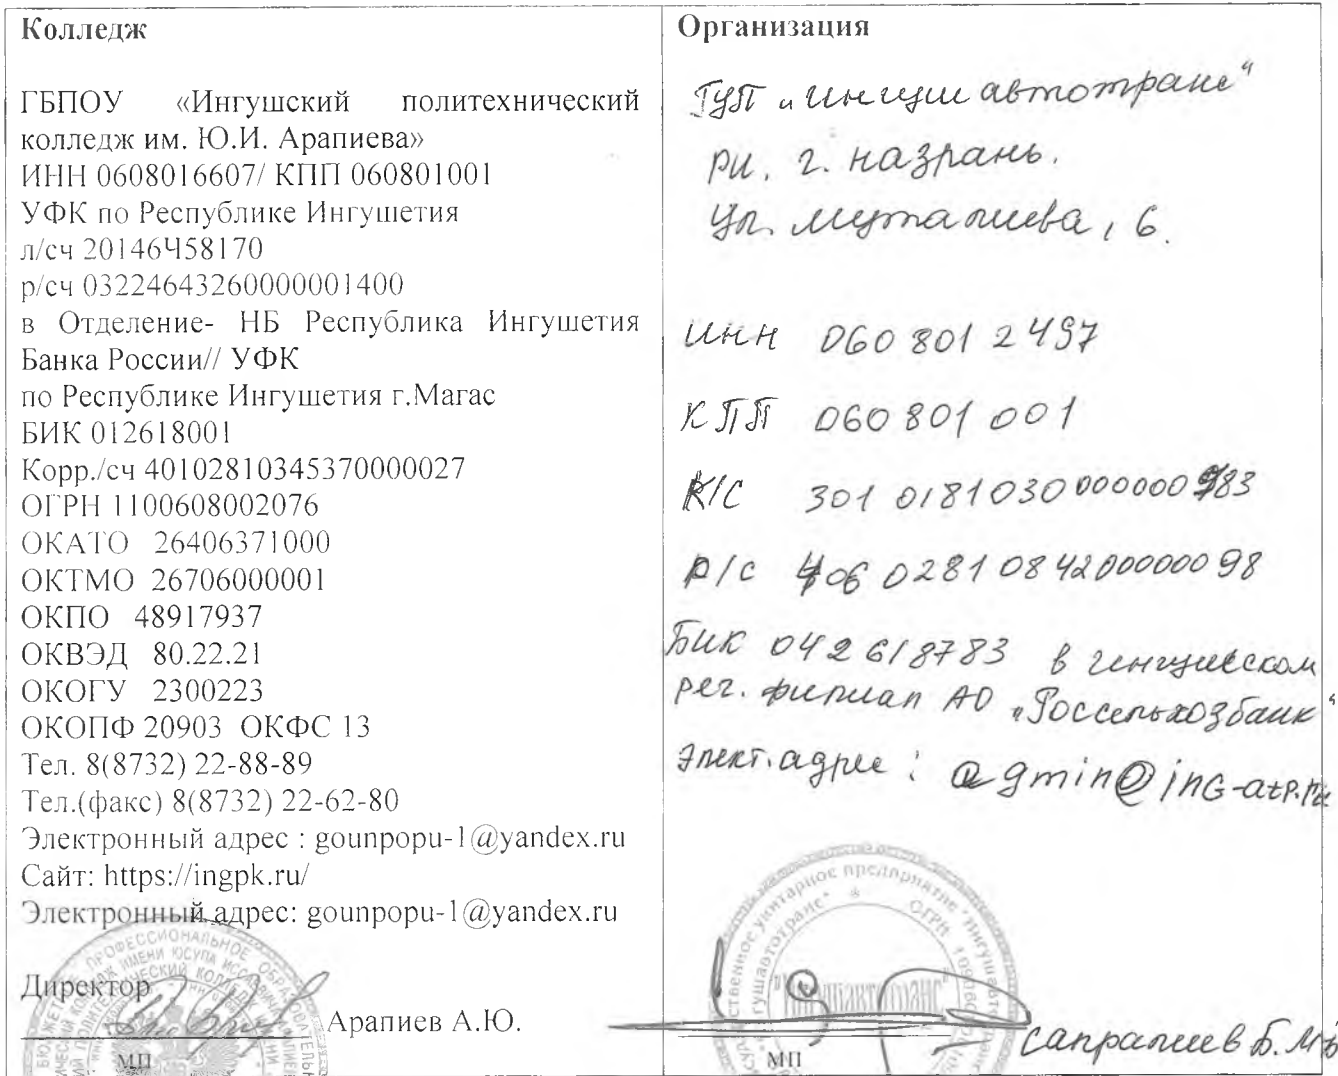 Колледж
ГБПОУ «Ингушский политехнический
колледж им. Ю.И. Арапиева»
ИНН 0608016607/ КПП 060801001
УФК по Республике Ингушетия
л/сч 20146Ч58170
р/сч 03224643260000001400
в Отделение- НБ Республика Ингушетия
Банка России// УФК
по Республике Ингушетия г.Магас
БИК 012618001
Корр./сч 40102810345370000027
ОГРН 1100608002076
ОКАТО 26406371000
ОКТМО 26706000001
ОКПО 48917937
ОКВЭД 80.22.21
ОКОГУ 2300223
ОКОПФ 20903 ОКФС 13
Тел. 8(8732) 22-88-89
Тел.(факс) 8(8732) 22-62-80
Электронный адрес : gounpopu-1@yandex.ru
Сайт: https://ingpk.ru/
Электронный адрес: gounpopu-1@yandex.ru
Директор
Арапиев А.Ю.
МП
Организация
ГУП „Ингушавтотранс“
РИ. г. Назрань.
ул. Муталиева, 6.
ИНН 0608012497
КПП 060801001
К/С 30101810300000000783
р/с 40602810842000000098
Бик 042618783 в Ингушском
рег. филиал АО „Россельхозбанк“
Элект. адрес : admin@ing-atp.ru
"Ингушавтотранс"
МП